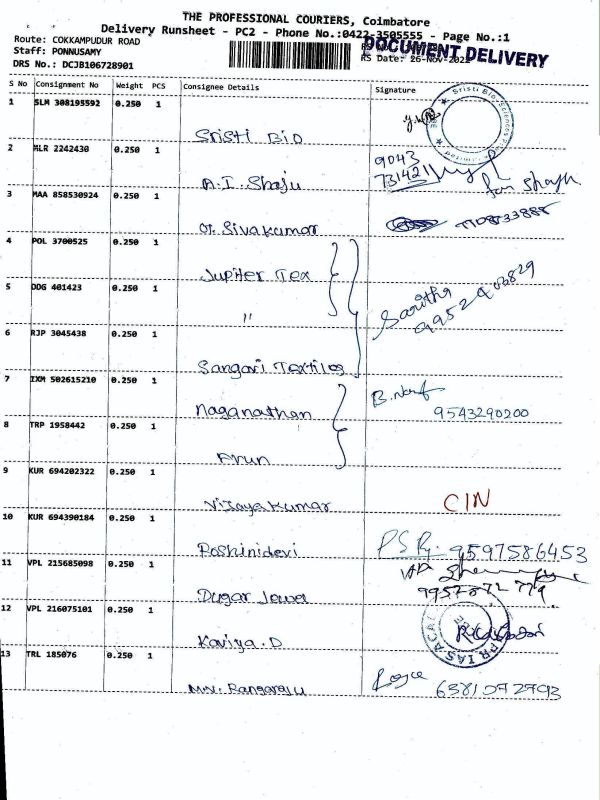 THE PROFESSIONAL COURIERS, Coimbatore
Delivery Runsheet - PC2 - Phone No.:0422-3505555 - Page No.:1
Route: COKKAMPUDUR ROAD
DOCUMENT DELIVERY
Staff: PONNUSAMY
RS Date: 26-Nov-202
DRS No.: DCJB106728901
S No Consignment No Weight PCS Consignee Details Signature
1 SLM 308195592 0.250 1 Sristi Bio
2 MLR 2242430 0.250 1 A.I. Shaju 9043 731421
3 MAA 858530924 0.250 1 Sivakumar
4 POL 3700525 0.250 1 Jupiter Tex
5 DDG 401423 0.250 1 "
Saritha
6 RJP 3045438 0.250 1 Sangari Textiles
7 IXM 502615210 0.250 1 Naganathan 9543290200
8 TRP 1958442 0.250 1 Arun
9 KUR 694202322 0.250 1 Vijaya Kumar CIN
10 KUR 694390184 0.250 1 Roshinidevi 9597586453
11 VPL 215685098 0.250 1 Dugar Jewel
12 VPL 216075101 0.250 1 Kaviya.D
13 TRL 185076 0.250 1 Rangaraju 6381072793